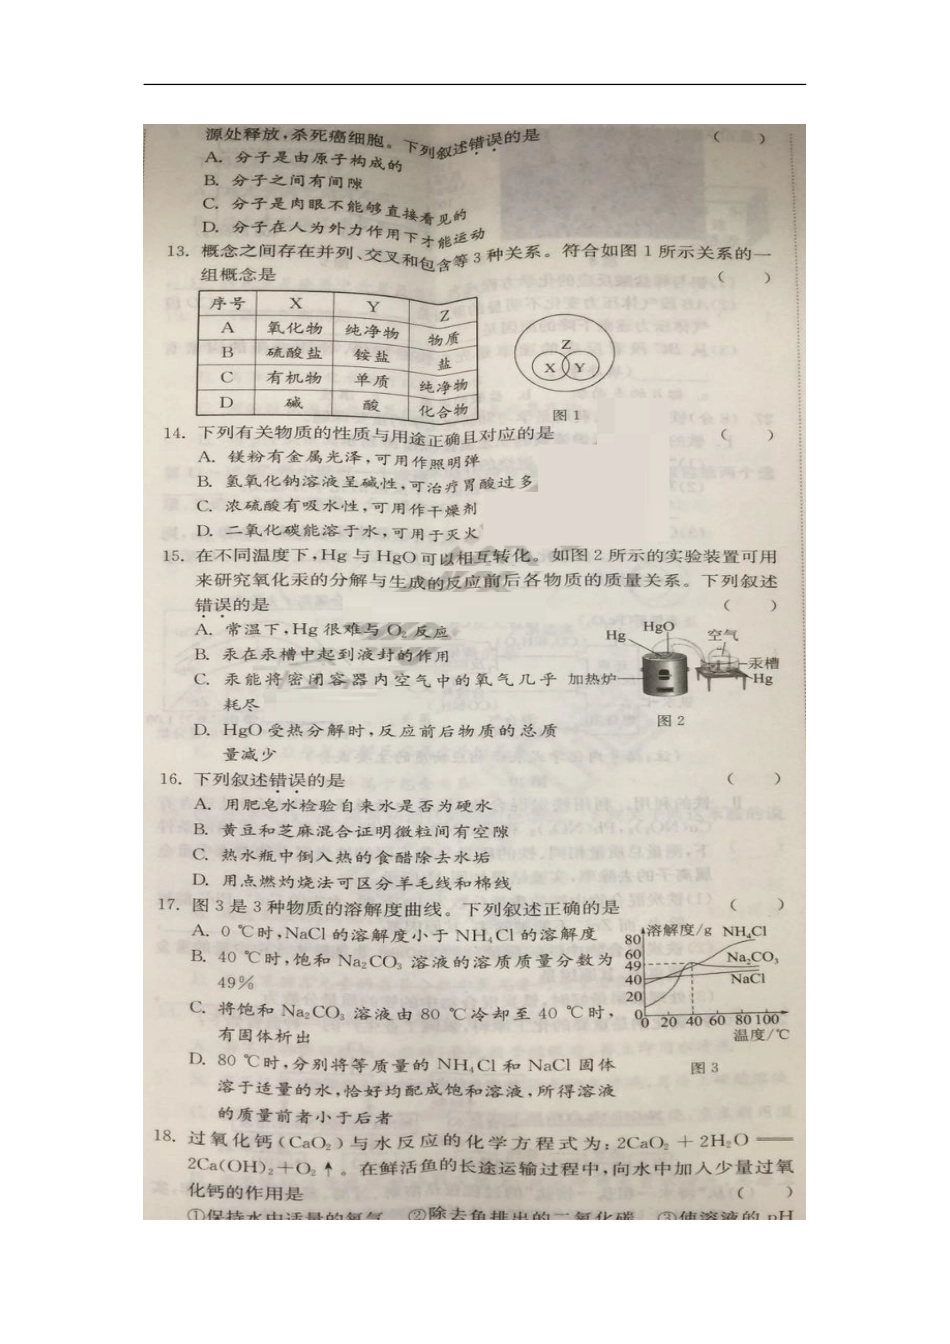 源处释放,杀死癌细胞。下列叙述错误的是 ( )
A. 分子是由原子构成的
B. 分子之间有间隙
C. 分子是肉眼不能够直接看见的
D. 分子在人为外力作用下才能运动
13. 概念之间存在并列、交叉和包含等3种关系。符合如图1所示关系的一
组概念是 ( )
序号 X Y Z
A 氧化物 纯净物 物质
B 硫酸盐 铵盐 盐
C 有机物 单质 纯净物
D 碱 酸 化合物
Z
X Y
图1
14. 下列有关物质的性质与用途正确且对应的是 ( )
A. 镁粉有金属光泽,可用作照明弹
B. 氢氧化钠溶液呈碱性,可治疗胃酸过多
C. 浓硫酸有吸水性,可用作干燥剂
D. 二氧化碳能溶于水,可用于灭火
15. 在不同温度下,Hg 与 HgO 可以相互转化。如图2所示的实验装置可用
来研究氧化汞的分解与生成的反应前后各物质的质量关系。下列叙述
错误的是 ( )
A. 常温下,Hg 很难与 O₂ 反应
B. 汞在汞槽中起到液封的作用
C. 汞能将密闭容器内空气中的氧气几乎
耗尽
D. HgO 受热分解时,反应前后物质的总质
量减少
Hg
HgO
空气
汞槽
Hg
加热炉
图2
16. 下列叙述错误的是 ( )
A. 用肥皂水检验自来水是否为硬水
B. 黄豆和芝麻混合证明微粒间有空隙
C. 热水瓶中倒入热的食醋除去水垢
D. 用点燃灼烧法可区分羊毛线和棉线
17. 图3是3种物质的溶解度曲线。下列叙述正确的是 ( )
A. 0 ℃时,NaCl 的溶解度小于 NH₄Cl 的溶解度
B. 40 ℃时,饱和 Na₂CO₃ 溶液的溶质质量分数为
49%
C. 将饱和 Na₂CO₃ 溶液由 80 ℃冷却至 40 ℃时,
有固体析出
D. 80 ℃时,分别将等质量的 NH₄Cl 和 NaCl 固体
溶于适量的水,恰好均配成饱和溶液,所得溶液
的质量前者小于后者
溶解度/g
NH₄Cl
Na₂CO₃
NaCl
80
60
49
40
20
0
0 20 40 60 80 100
温度/℃
图3
18. 过氧化钙(CaO₂)与水反应的化学方程式为:2CaO₂ + 2H₂O ══
2Ca(OH)₂+O₂↑。在鲜活鱼的长途运输过程中,向水中加入少量过氧
化钙的作用是 ( )
①保持水中适量的氧气 ②除去鱼排出的二氧化碳 ③使溶液的 pH